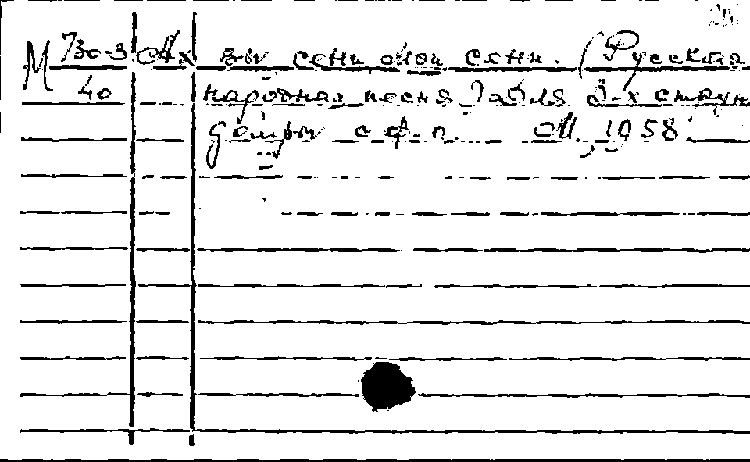 М 730-3 Ах вы сени мои сени. (Русская
40 народная песня) для 3-х струн
домры с ф-п. М., 1958.